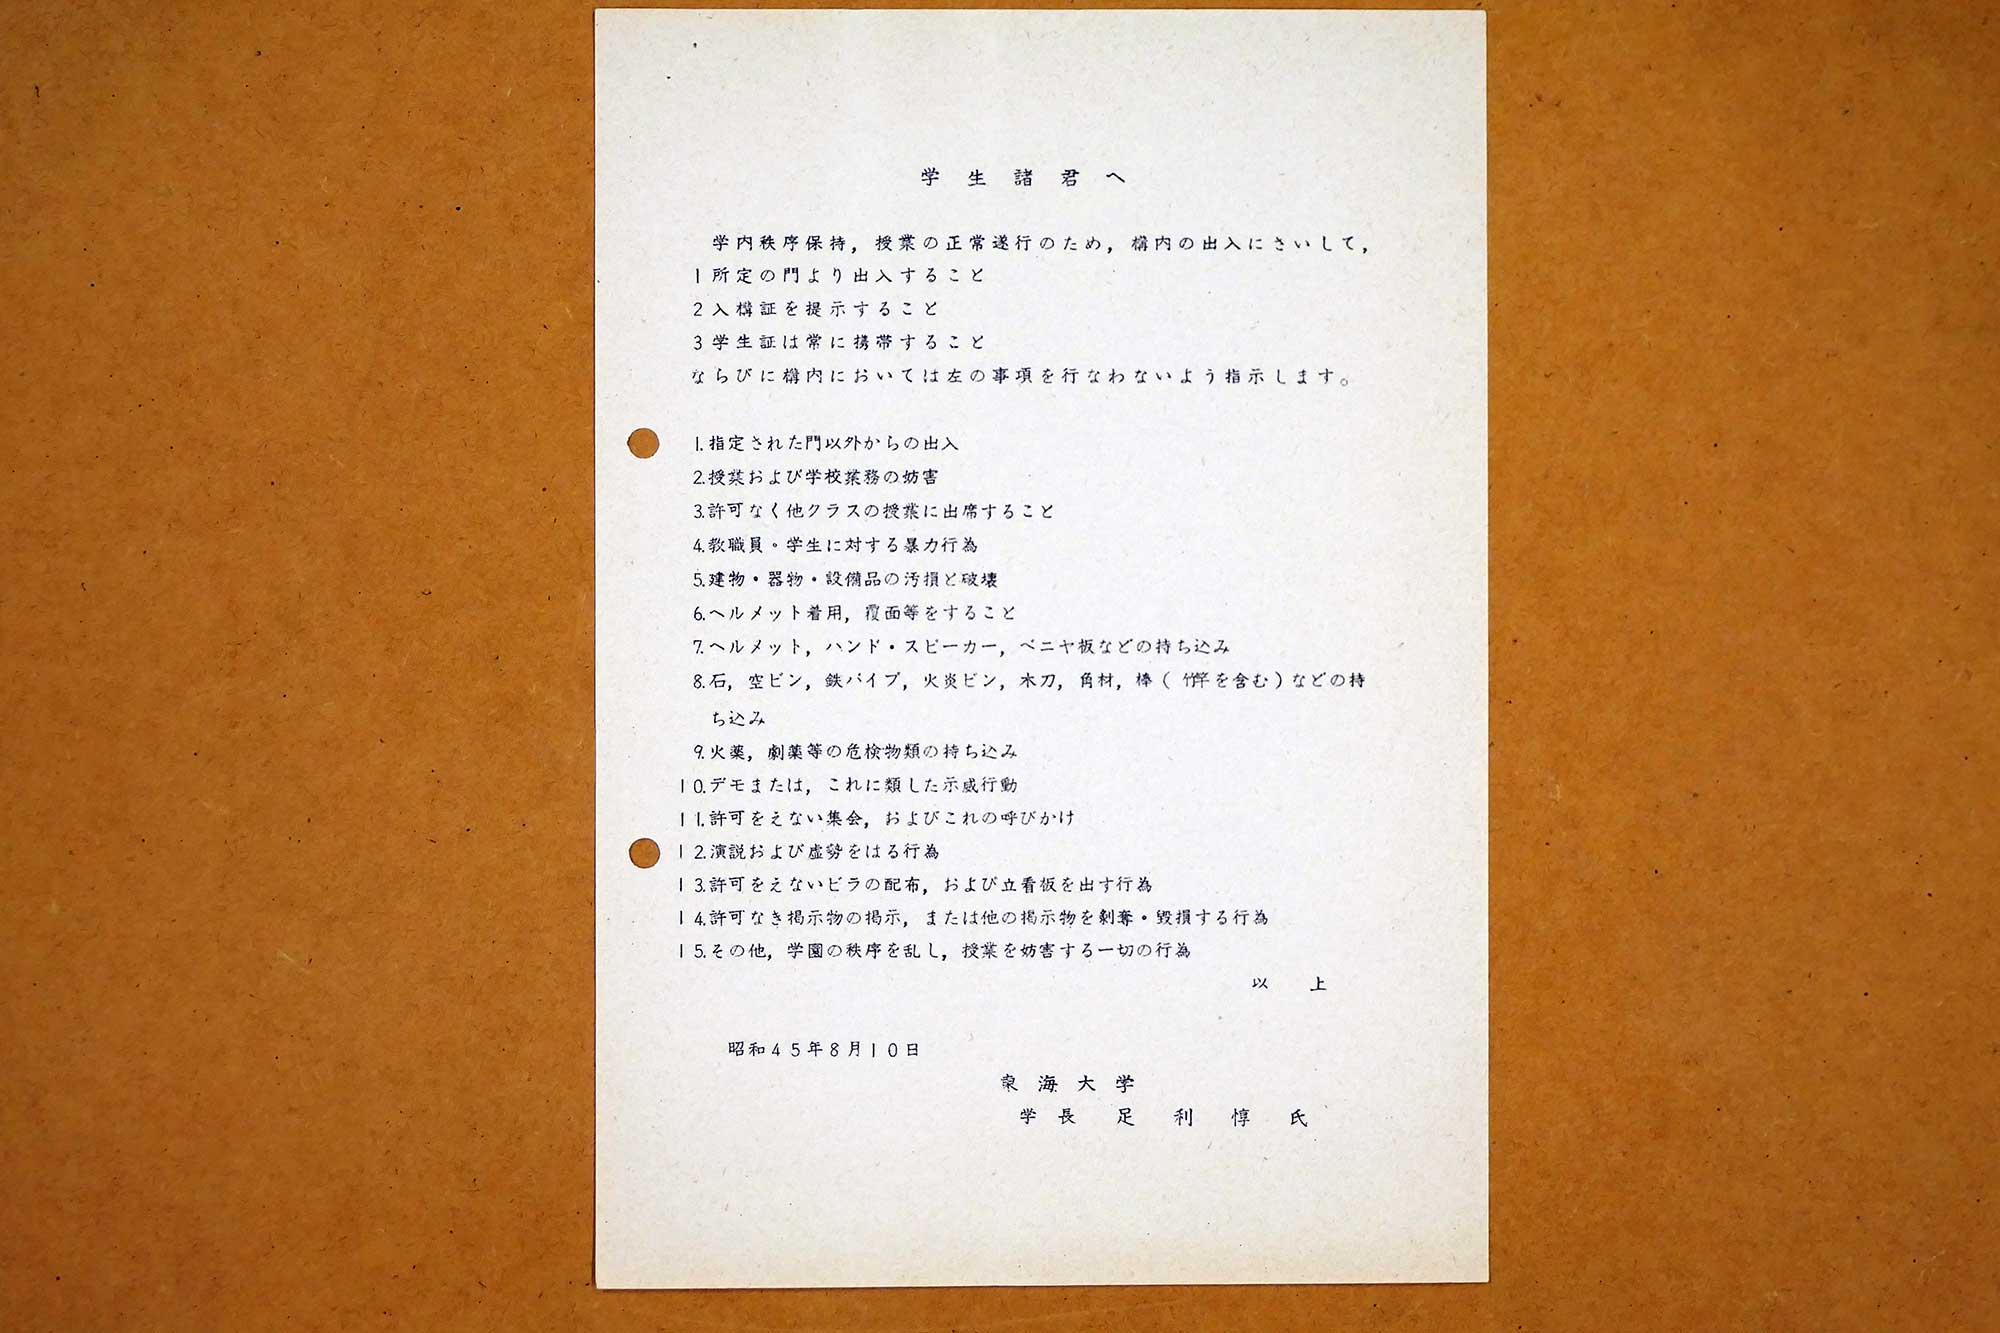 学生諸君へ
学内秩序保持，授業の正常遂行のため，構内の出入にさいして，
1所定の門より出入すること
2入構証を提示すること
3学生証は常に携帯すること
ならびに構内においては左の事項を行なわないよう指示します。
1.指定された門以外からの出入
2.授業および学校業務の妨害
3.許可なく他クラスの授業に出席すること
4.教職員・学生に対する暴力行為
5.建物・器物・設備品の汚損と破壊
6.ヘルメット着用，覆面等をすること
7.ヘルメット，ハンド・スピーカー，ベニヤ板などの持ち込み
8.石，空ビン，鉄パイプ，火炎ビン，木刀，角材，棒（竹竿を含む）などの持
ち込み
9.火薬，劇薬等の危険物類の持ち込み
10.デモまたは，これに類した示威行動
11.許可をえない集会，およびこれの呼びかけ
12.演説および虚勢をはる行為
13.許可をえないビラの配布，および立看板を出す行為
14.許可なき掲示物の掲示，または他の掲示物を剝奪・毀損する行為
15.その他，学園の秩序を乱し，授業を妨害する一切の行為
以上
昭和45年8月10日
東海大学
学長 足利惇氏